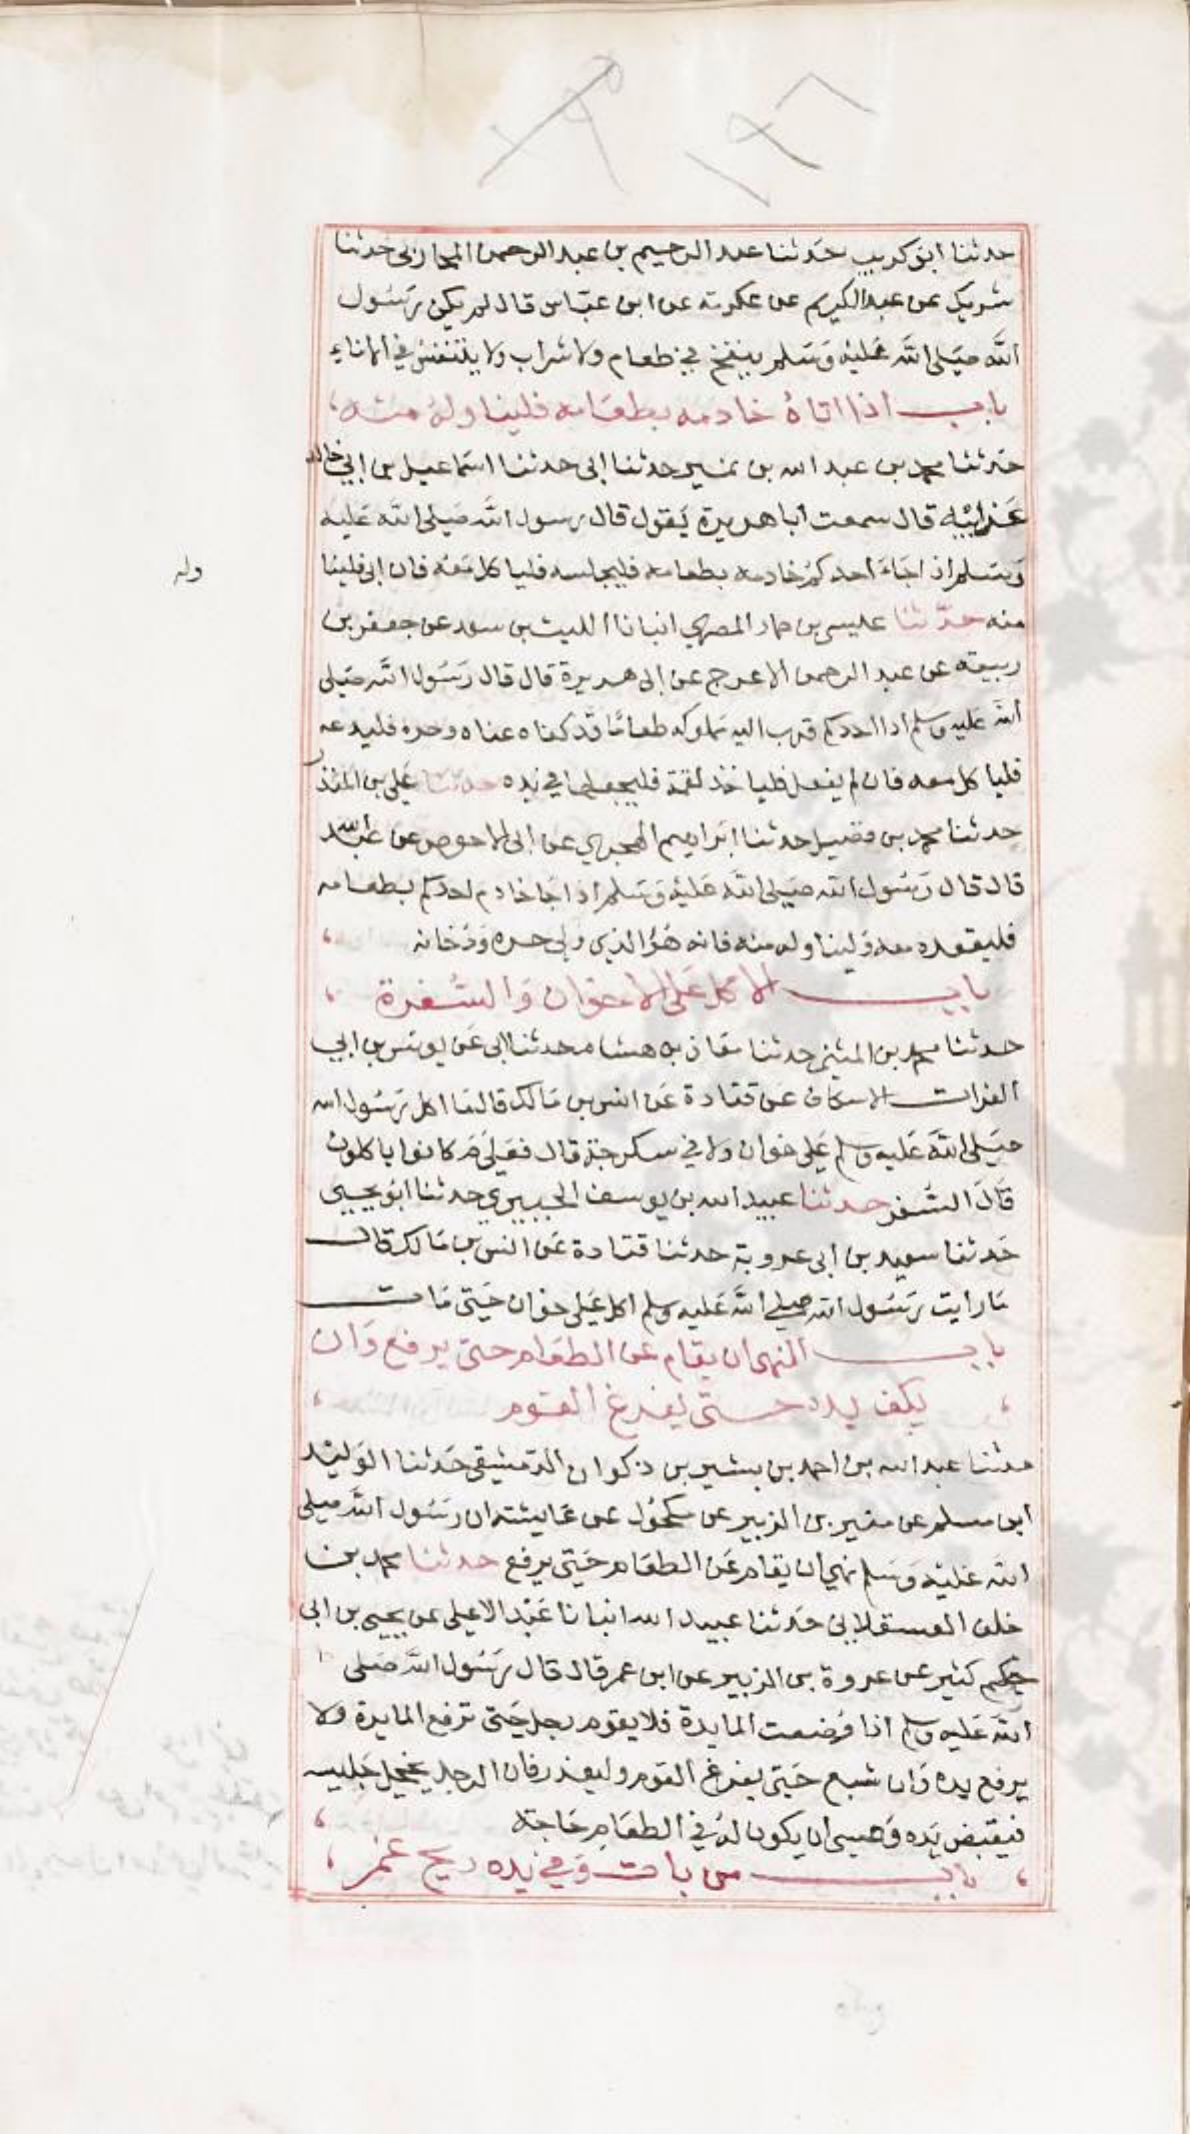 ١٩٦
حدثنا ابو كريب حدثنا عبد الرحيم بن عبد الرحمن المحاربي حدثنا
شريك عن عبد الكريم عن عكرمة عن ابن عباس قال لم يكن رسول
الله صلى الله عليه وسلم ينفخ في طعام ولا شراب ولا يتنفس في الاناء
باب اذا اتاه خادمه بطعامه فليناوله منه
حدثنا محمد بن عبد الله بن نمير حدثنا ابي حدثنا اسماعيل بن ابي خالد
عن ابيه قال سمعت ابا هريرة يقول قال رسول الله صلى الله عليه
وسلم اذا جاء احدكم خادمه بطعامه فليجلسه فلياكل معه فان ابى فلينا
وله
منه حدثنا عليسى بن حماد المصري انبانا الليث بن سعد عن جعفر بن
ربيعة عن عبد الرحمن الاعرج عن ابي هريرة قال قال رسول الله صلى
الله عليه وسلم اذا احدكم قرب اليه مملوكه طعاما قد كفاه عناه وحره فليدعه
فلياكل معه فان لم يفعل فلياخذ لقمة فليجعلها في يده حدثنا علي بن المنذر
حدثنا محمد بن فضيل حدثنا ابراهيم الهجري عن ابي الاحوص عن عبد الله
قال قال رسول الله صلى الله عليه وسلم اذا جا خادم احدكم بطعامه
فليقعده معه وليناوله منه فانه هو الذي ولي حره ودخانه
باب الاكل على الاخوان والسفرة
حدثنا محمد بن المثنى حدثنا معاذ بن هشام حدثنا ابي عن يونس بن ابي
الفرات الاسكاف عن قتادة عن انس بن مالك قال ما اكل رسول الله
صلى الله عليه وسلم على خوان ولا في سكرجة قال فعلى م كانوا ياكلون
قال السفر حدثنا عبيد الله بن يوسف الجبيري حدثنا ابو يحيى
حدثنا سعيد بن ابي عروبة حدثنا قتادة عن انس بن مالك قال
ما رايت رسول الله صلى الله عليه وسلم اكل على خوان حتى مات
باب النهي ان يقام عن الطعام حتى يرفع وان
يكف يده حتى يفرغ القوم
حدثنا عبد الله بن احمد بن بشير بن ذكوان الدمشقي حدثنا الوليد
ابن مسلم عن منير بن الزبير عن مكحول عن عايشة ان رسول الله صلى
الله عليه وسلم نهى ان يقام عن الطعام حتى يرفع حدثنا محمد بن
خلف العسقلاني حدثنا عبيد الله انبانا عبد الاعلى عن يحيى بن ابي
كثير عن عروة بن الزبير عن ابن عمر قال قال رسول الله صلى
الله عليه وسلم اذا وضعت المايدة فلا يقوم رجل حتى ترفع المايدة ولا
يرفع يده وان شبع حتى يفرغ القوم وليعذر فان الرجل يخجل جليسه
فيقبض يده وعسى ان يكون له في الطعام حاجة
باب من بات وفي يده ريح غمر